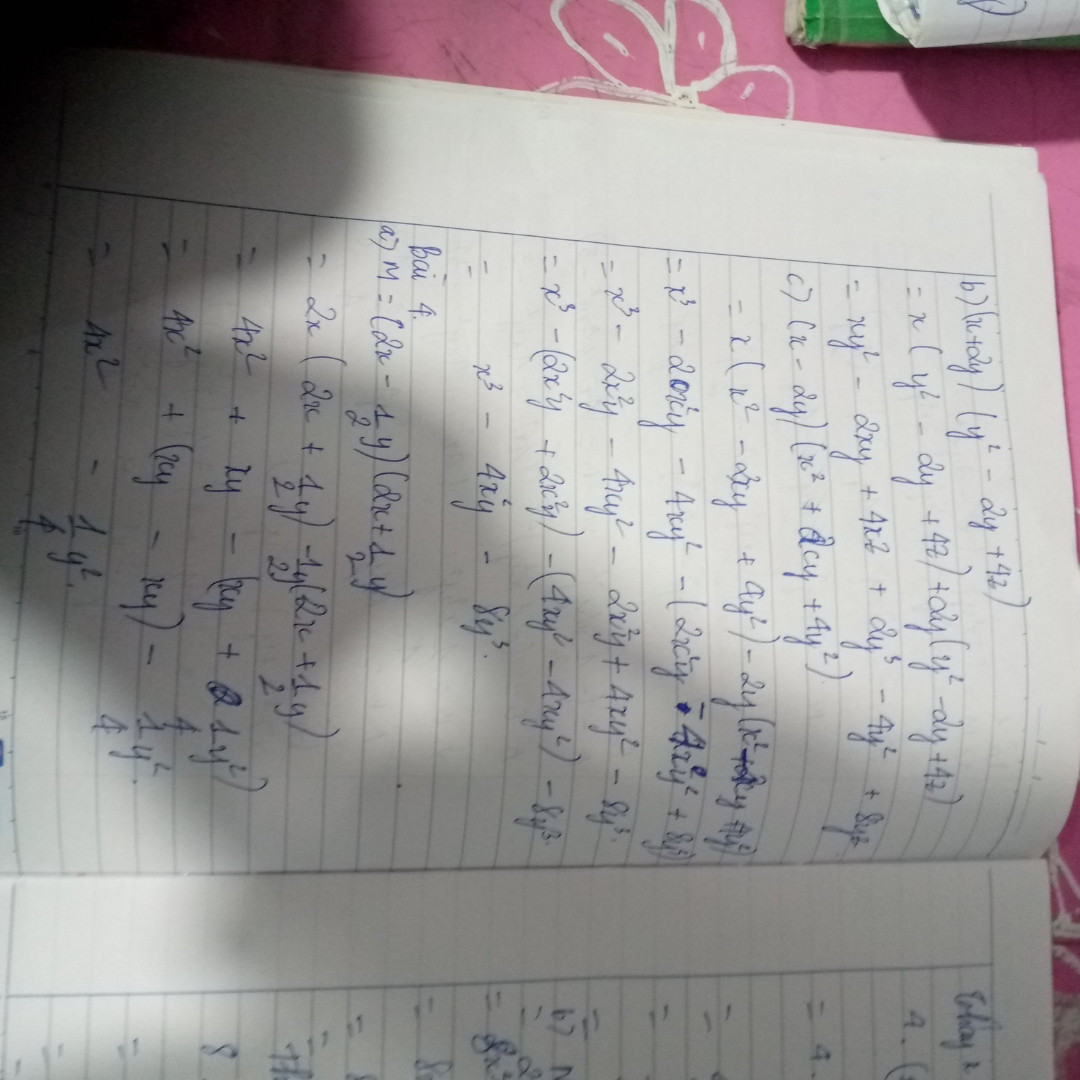 b) (x+2y) (y² - 2y + 4z)
= x (y² - 2y + 4z) + 2y (y² - 2y + 4z)
= xy² - 2xy + 4xz + 2y³ - 4y² + 8yz
c) (x - 2y) (x² + 2xy + 4y²)
= x (x² - 2xy + 4y²) - 2y (x² + 2xy + 4y²)
= x³ - 2x²y - 4xy² - (2x²y - 4xy² + 8y³)
= x³ - 2x²y - 4xy² - 2x²y + 4xy² - 8y³.
= x³ - (2x²y + 2x²y) - (4xy² - 4xy²) - 8y³.
= x³ - 4x²y - 8y³.
Bài 4.
a) M = (2x - 1/2 y) (2x + 1/2 y)
= 2x (2x + 1/2 y) - 1/2 y (2x + 1/2 y)
= 4x² + xy - (xy + 1/4 y²)
= 4x² + (xy - xy) - 1/4 y².
= 4x² - 1/4 y².
Thay
4. (
= 4.
=
=
=
b) N
=
= 8x³
= 8
=
=
8
=
=
=